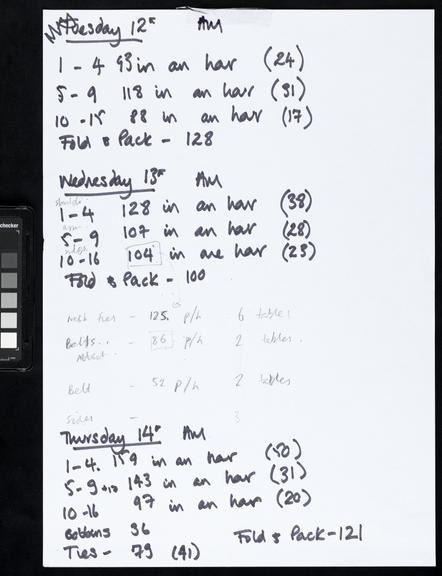 Tuesday 12th AM
1 - 4 93 in an har (24)
5 - 9 118 in an har (31)
10 - 15 88 in an har (17)
Fold & Pack - 128
Wednesday 13th AM
1 - 4 128 in an har (38)
5 - 9 107 in an har (28)
10 - 16 104 in one har (23)
Fold & Pack - 100
Neck ties - 125. p/h 6 tables
Belts.. - 86 p/h 2 tables.
Belt - 52 p/h 2 tables
Sides - 3
Thursday 14th AM
1 - 4. 159 in an har (50)
5 - 9 +10 143 in an har (31)
10 - 16 97 in an har (20)
Bottoms 36 Fold & Pack - 121
Ties - 79 (41)
checker